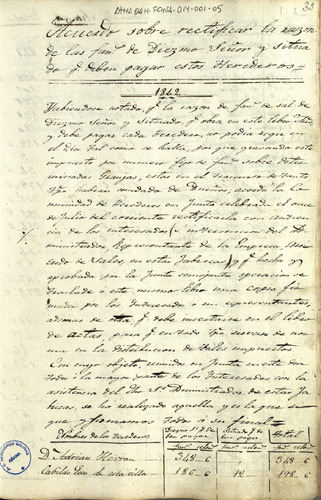 AHA DAH-FCHSA-014-001-05
33
Acuerdo sobre rectificar la razon
de las fan.s de Diezmo Señor y situa
do q.e deben pagar estos Herederos
1842
Habiendose notado q.e la razon de fan.s de sal de
Diezmo Señor y Situado q.e obra en este libro
y debe pagar cada Heredero, no podia seguir en
el dia tal como se halla, por que gravando este
impuesto por numero fijo de fan.s sobre deter
minadas Granjas, estas en el transcurso de tanto
tpo habian mudado de Dueños; acordó la Co
munidad de Herederos en Junta celebrada el once
de Julio del corriente rectificarla con audien
cia de los interesados e intervencion del Ad
ministrador, Representante de la Empresa
de Sales, en estas Fabricas y q.e hecha y
aprobada por la Junta semejante operacion se
traslade á este mismo libro una copia fir
mada por los Interesados ó sus representantes,
ademas de otra q.e debe insertarse en el libro
de actas, para q.e en todo tpo sirvan de nor
ma en la distribucion de tales impuestos.
Con cuyo objeto, reunidos en Junta en este dia
todos ó la mayor parte de los Interesados con la
asistencia del Sr. Administrador de estas Fa
bricas, se ha realizado aquella y es la que se
sigue y firmamos todos á su final
Nombres de los Herederos
Diezmo Sr q.e de
ben pagar
Situado q.e de
ben pagar
Total
D. Adrian Herran 348 6 348 6
Cabildo Ecco de esta villa 186 6 12 198 6